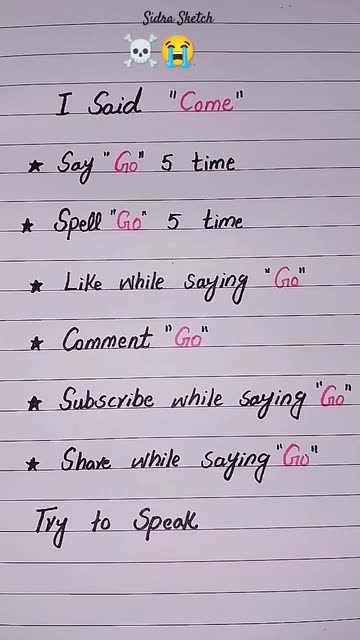 Sidra Sketch
☠️😭
I Said "Come"
★ Say "Go" 5 time
★ Spell "Go" 5 time
★ Like while saying "Go"
★ Comment "Go"
★ Subscribe while saying "Go"
★ Share while saying "Go"
Try to Speak